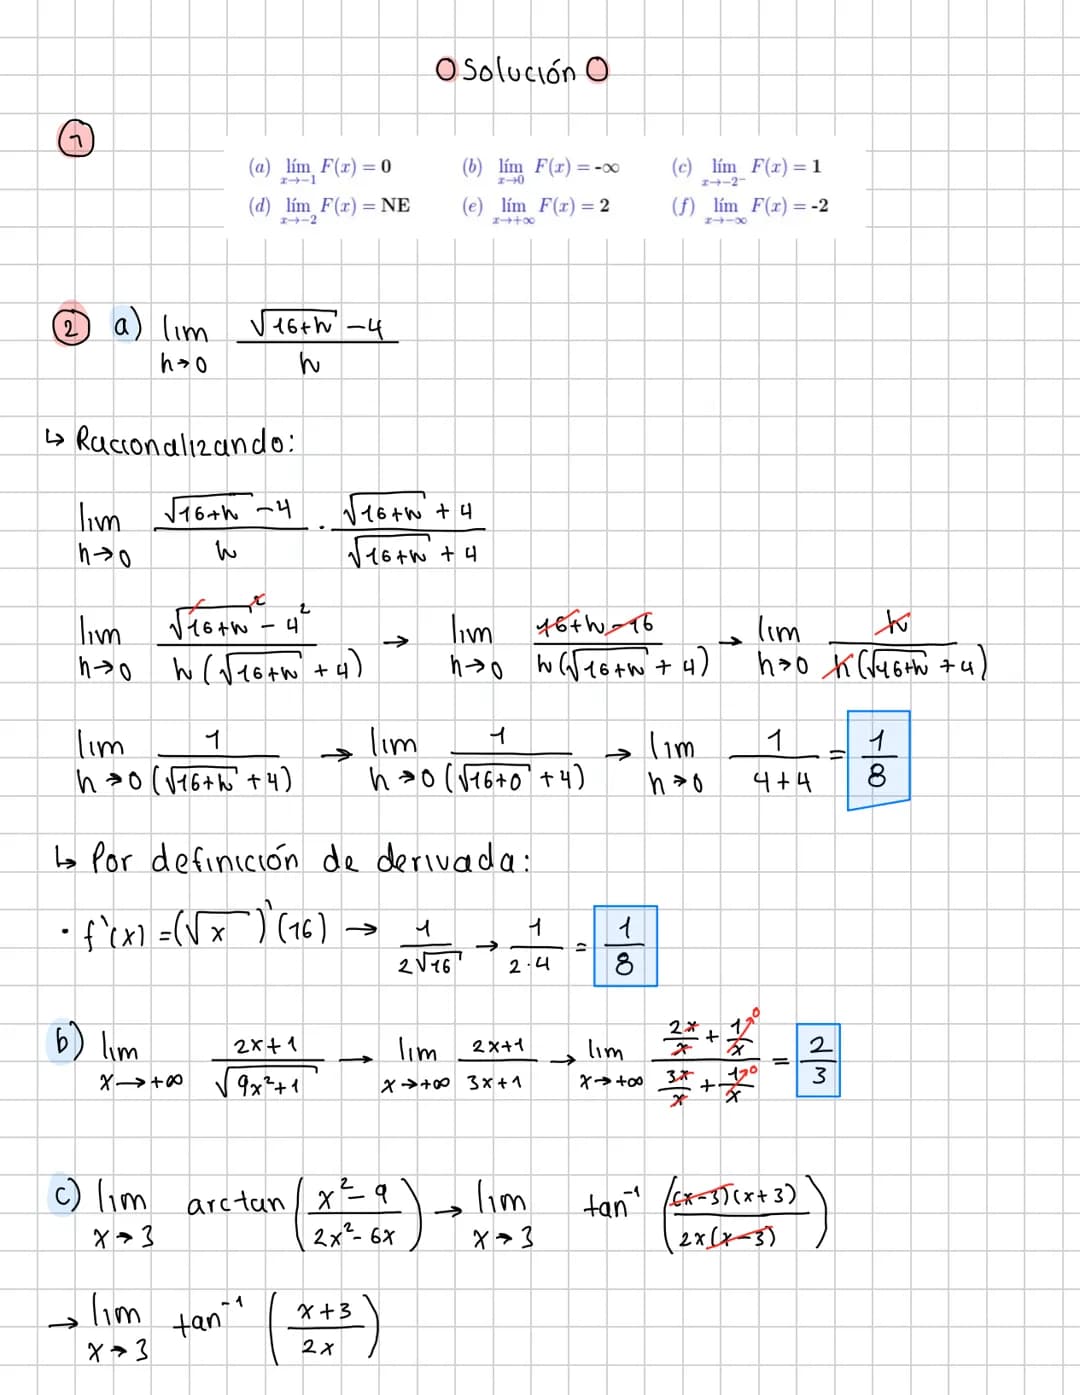 Solución
1
(a) lím x→-1 F(x) = 0 (b) lím x→0 F(x) = -∞ (c) lím x→-2⁻ F(x) = 1
(d) lím x→-2 F(x) = NE (e) lím x→+∞ F(x) = 2 (f) lím x→-∞ F(x) = -2
2 a) lim h→0 (√(16+h) - 4)/h
↳ Racionalizando:
lim h→0 (√(16+h) - 4)/h · (√(16+h) + 4)/(√(16+h) + 4)
lim h→0 (√(16+h)² - 4²)/(h(√(16+h) + 4)) → lim h→0 (16+h-16)/(h(√(16+h) + 4)) → lim h→0 h/(h(√(16+h) + 4))
lim h→0 1/(√(16+h) + 4) → lim h→0 1/(√(16+0) + 4) → lim h→0 1/(4+4) = 1/8
↳ Por definición de derivada:
· f'(x) = (√x)'(16) → 1/(2√16) → 1/(2·4) = 1/8
b) lim x→+∞ (2x+1)/√(9x²+1) → lim x→+∞ (2x+1)/(3x+1) → lim x→+∞ (2x/x + 1/x→0)/(3x/x + 1/x→0) = 2/3
c) lim x→3 arctan((x²-9)/(2x²-6x)) → lim x→3 tan⁻¹((x-3)(x+3)/(2x(x-3)))
→ lim x→3 tan⁻¹((x+3)/(2x))